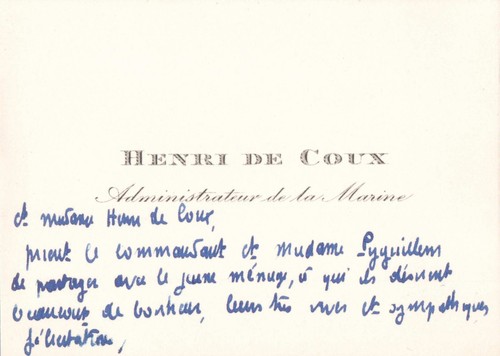 HENRI DE COUX
Administrateur de la Marine
et madame Henri de Coux,
prient le commandant et madame Pyguillem
de partager avec le jeune ménage, à qui ils désirent
beaucoup de bonheur, leurs très vives et sympathiques
félicitations,